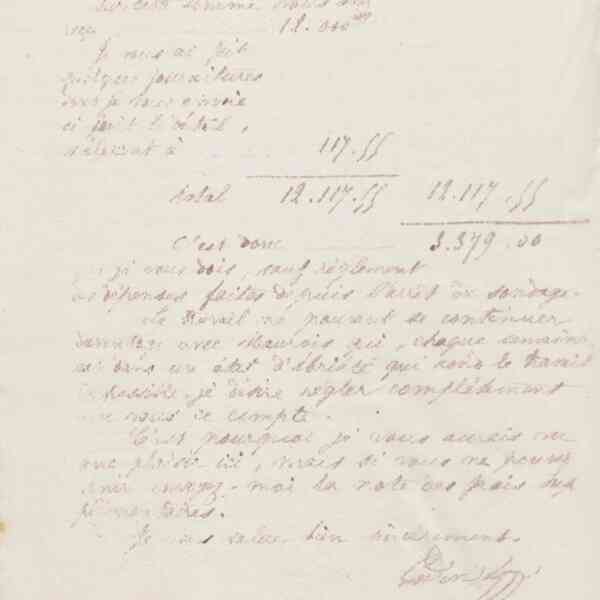 somme
reçu 12.000
Je vous ai fait
quelques fournitures
dont je vous envoie
ci joint le détail,
s'élevant à 117.55
total 12.117.55 12.117.55
C'est donc 3.379.00
que je vous dois, sauf règlement
des dépenses faites depuis l'arrêt du sondage.
Le travail ne pouvant se continuer
avec qui, chaque semaine
est dans un état d'ébriété qui rend le travail
impossible, je désire régler complètement
avec vous ce compte.
C'est pourquoi je vous aurais vu
avec plaisir ici, mais si vous ne pouvez
venir envoyez-moi la note des frais sup
plémentaires.
Je vous salue bien sincèrement.